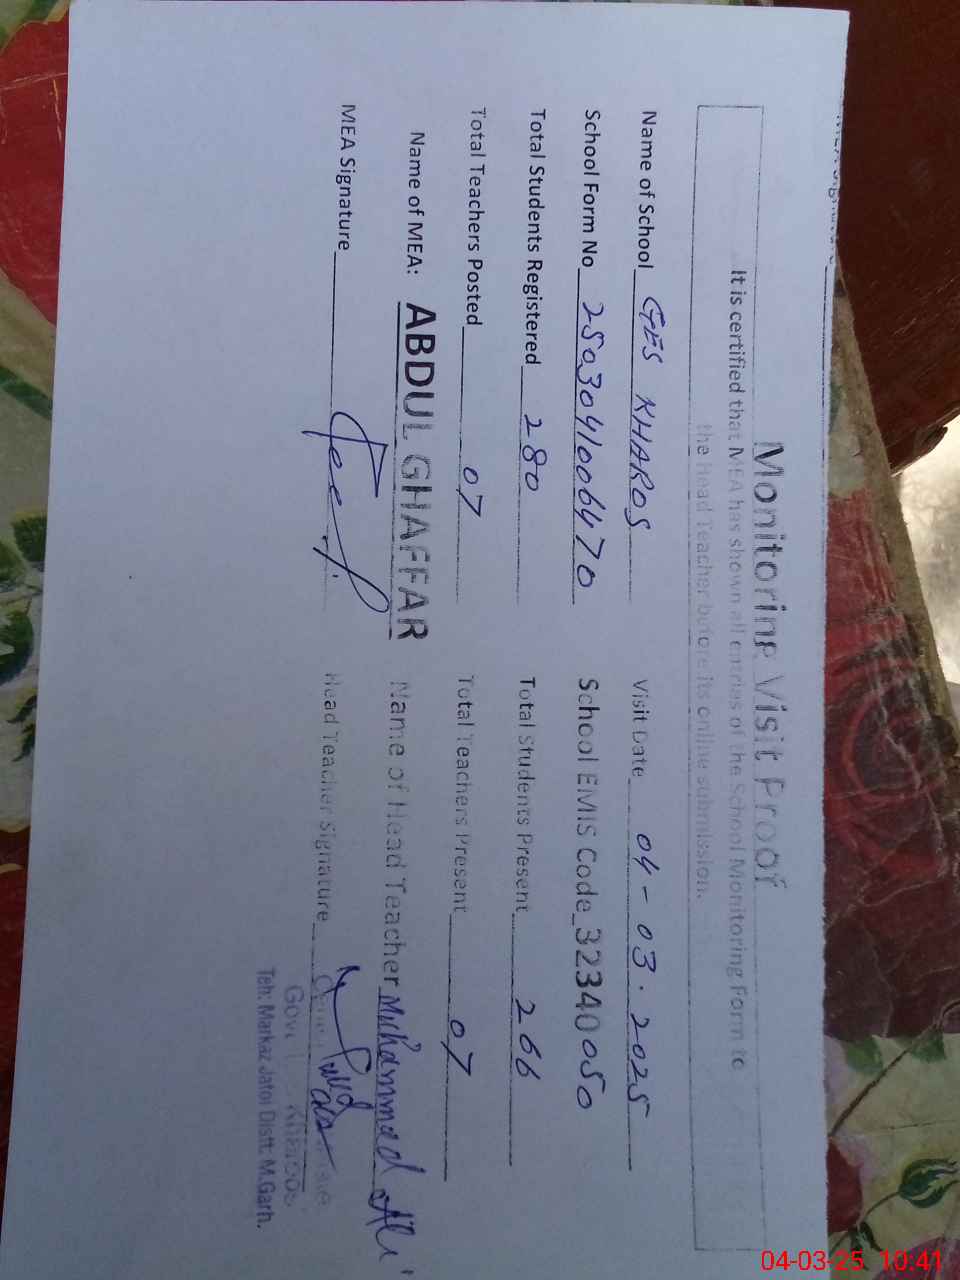 MEA Signature
Monitoring Visit Proof
It is certified that MEA has shown all entries of the School Monitoring Form to
the Head Teacher before its online submission.
Name of School GES KHAROS Visit Date 04-03.2025
School Form No 2503041006470 School EMIS Code 32340050
Total Students Registered 280 Total Students Present 266
Total Teachers Posted 07 Total Teachers Present 07
Name of MEA: ABDUL GHAFFAR Name of Head Teacher Muhammad Ali
MEA Signature Head Teacher Signature
Govt
Teh: Markaz Jatoi Distt. M.Garh.
04-03-25 10:41